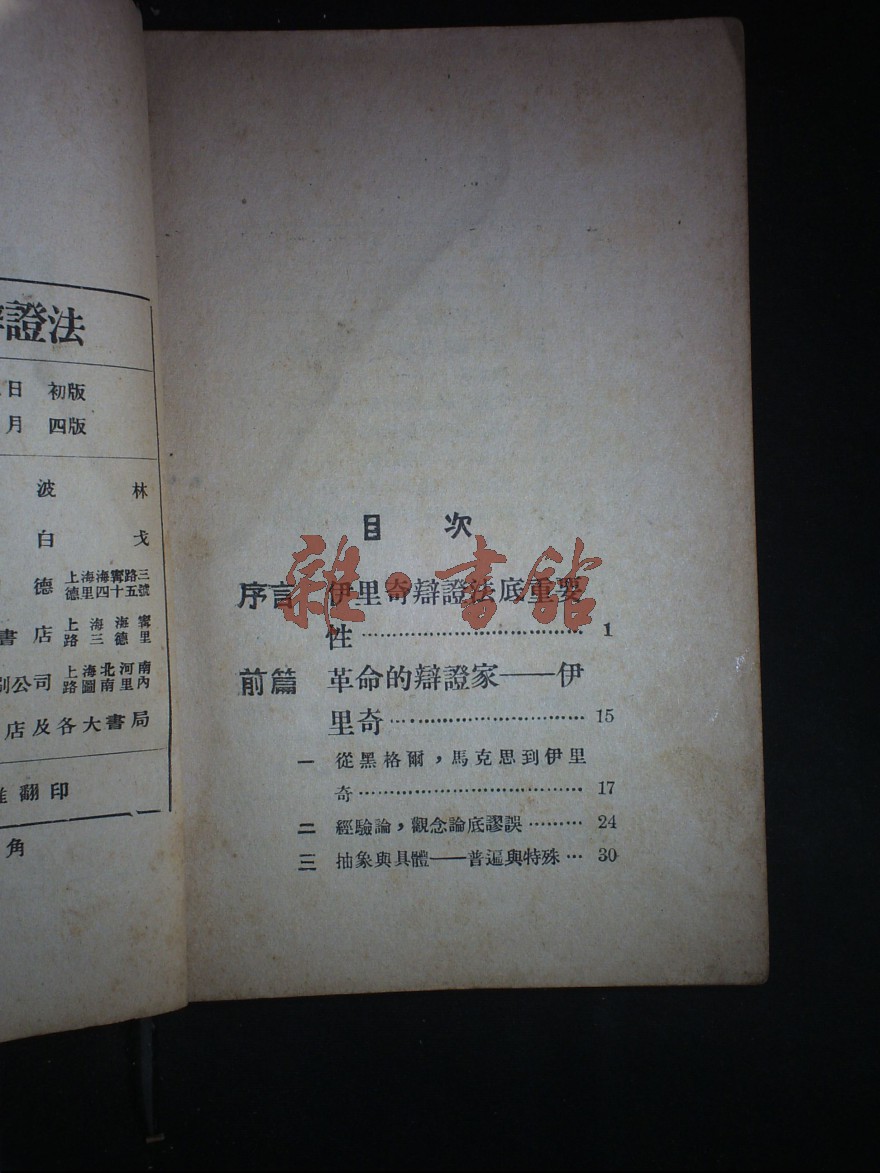 證法
日 初版
月 四版
波 林
白 戈
德 上海海寗路三德里四十五號
書店 上海海寗路三德里
公司 上海北河南路圖南里內
店及各大書局
翻印
角
目 次
序言 伊里奇辯證法底重要
性 1
前篇 革命的辯證家——伊
里奇 15
一 從黑格爾，馬克思到伊里
奇 17
二 經驗論，觀念論底謬誤 24
三 抽象與具體——普遍與特殊 30
雜·書館